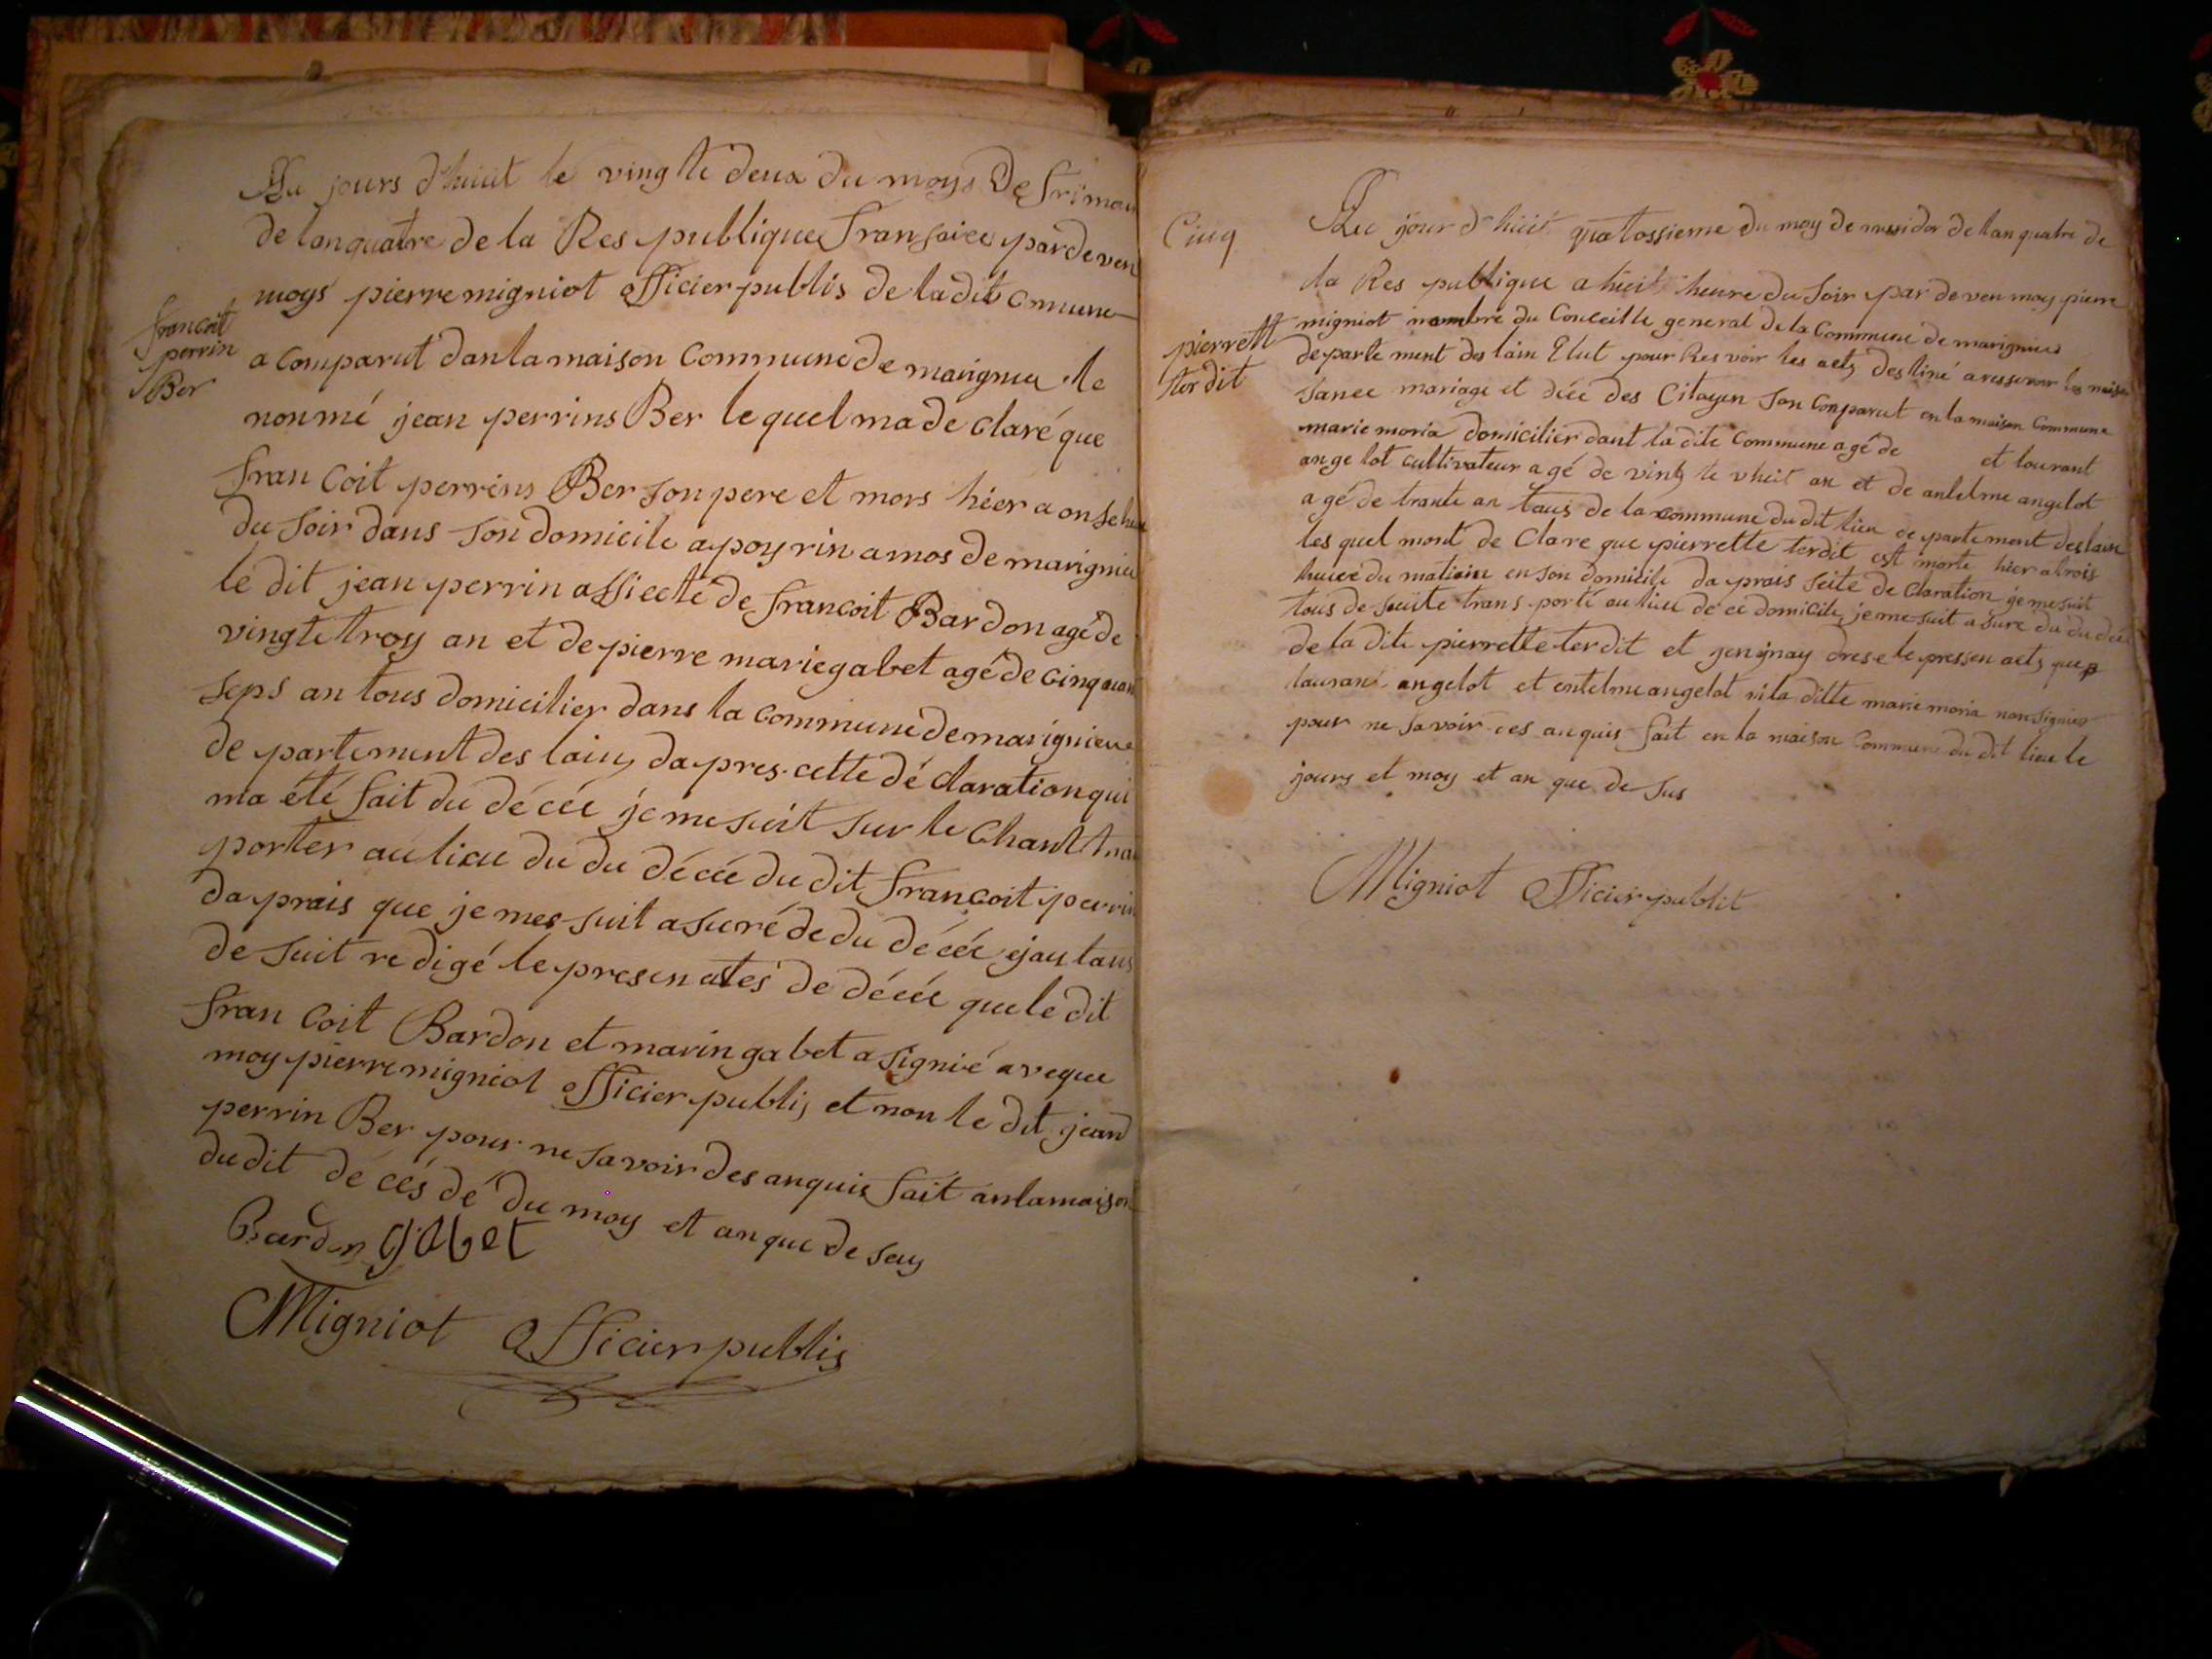 Au jours d'huit le vingte deux du moys de frimau
de lanquatre de la Res publique fransaice par deven
moys pierre migniot officier publis de ladit Cmune
francoit
perrin
Ber
a Comparut dan la maison Commune de marignieu le
nonmé jean perrins Ber le quel ma de claré que
fran Coit perrins Ber son pere et mors hier a onse heu
du soir dans son domicile a poyrin amos de marignieu
le dit jean perrin assiecté de francoit Bardon agé de
vingte troy an et de pierre marie gabet agé de cinquan
seps an tous domicilier dans la commune de marignieue
de partement des lain, da pres cette dé claration qui
ma été fait du décée je me suit sur le Chant tra
porter au lieu du du décée du dit francoit perrin
da prais que je mes suit a suré de du décée ejau taus
de suit re digé le presen actes de décée que le dit
fran Coit Bardon et marin gabet a signié aveque
moy pierre migniot officier publis et non le dit jean
perrin Ber pour ne savoir des anquis fait an la maison
du dit dé cés dé du moy et an que de suy
Bardon gabet
Migniot officier publis
Cinq
Au jour d'huit quatossieme du moy de mesidor de lan quatre de
la Res publique a huit heure du soir par de ven moy pierre
pierrett
terdit
migniot manbre du Conceille general de la Commune de marignieu
departe ment des lain Elut pour Res voir les acts destiné a ressevoir les nais
sance mariage et décée des Citoyen son Conparut en la maison Commune
marie moria domicilier dant la dite Commune agé de et lourant
ange lot cultivateur agé de vingt te vhuit an et de antelme angelot
agé de trante an taus de la commune du dit lieu de partement des lain
les quel mont de Clare que pierrette terdit est morte hier a trois
heure du matin en son domicile da prais seite de claration je me suit
tous de suite trans porté au lieu de ce domicile, je me suit a sure du du décé
de la dite pierrette terdit et jen nay drese le pressen acts que
laurant angelot et entelme angelot ni la ditte marie moria non signié
pour ne savoir ces anquis fait en la maison Commune du dit lieu le
jours et moy et an que de sus
Migniot officier publit